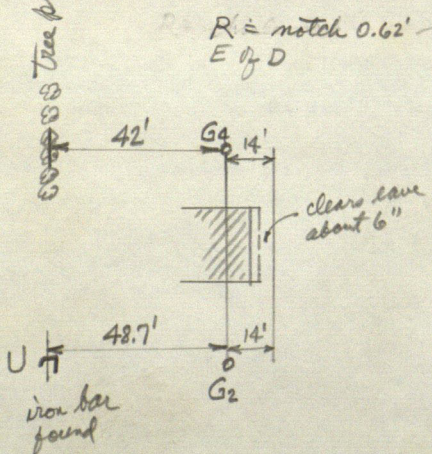 R = notch 0.62' -
E of D
tree
42'
G4
14'
clears eave
about 6"
48.7'
14'
U
G2
iron bar
found